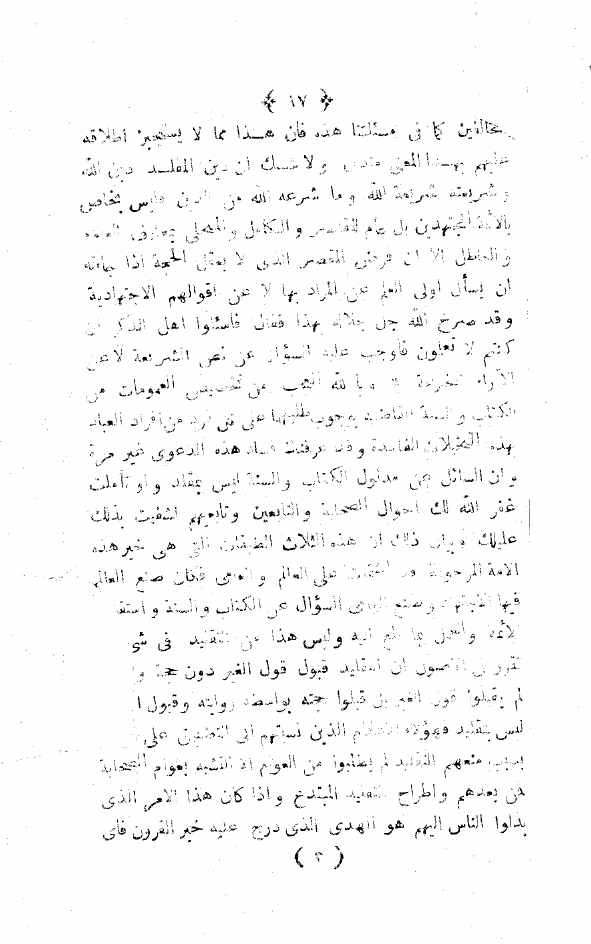 ﴿ ١٧ ﴾
كما فى مسئلتنا هذه فان هذا مما لا يستجيز اطلاقه
عليهم بهذا المعنى ولا شك ان دين المقلد دين الله
وشريعته شريعة الله وما شرعه الله من الدين فليس بخاص
بالائمة المجتهدين بل عام للقاصر والكامل
والعاطل الا ان فرض المقصر الذى لا يعقل الحجة اذا جاءته
ان يسأل اولى العلم عن المراد بها لا عن اقوالهم الاجتهادية
وقد صرح الله جل جلاله بهذا فقال فاسئلوا اهل الذكر ان
كنتم لا تعلمون فاوجب عليه السؤال عن نص الشريعة لا عن
الآراء العجب من تخصيص العمومات من
الكتاب والسنة القاضية بوجوب طلبها على كل فرد من افراد العباد
بهذه التخيلات الفاسدة وقد عرفناك فساد هذه الدعوى غير مرة
وان السائل عن مدلول الكتاب والسنة ليس بمقلد ولو تأملت
غفر الله لك احوال الصحابة والتابعين وتابعيهم لشفيت بذلك
غليلك وبيان ذلك ان هذه الثلاث الطبقات التى هى خير هذه
الامة المرحومة قد اشتملت على العالم والعامى فكان صنع العالم
فيها الاجتهاد وصنع العامى السؤال عن الكتاب والسنة
والعمل بما وليس هذا من التقليد فى شئ
تقرر فى الاصول ان التقليد قبول قول الغير دون حجة
لم يقبلوا قول الغير بل قبلوا حجته بواسطة روايته وقبول
ليس بتقليد فهؤلاء الاعلام الذين نسبتهم الى
بسبب منعهم التقليد لم يطلبوا من العوام الا التشبه بعوام الصحابة
فمن بعدهم واطراح التقليد المبتدع واذا كان هذا الامر الذى
بذلوا الناس اليهم هو الهدى الذى درج عليه خير القرون فاى
( ٣ )